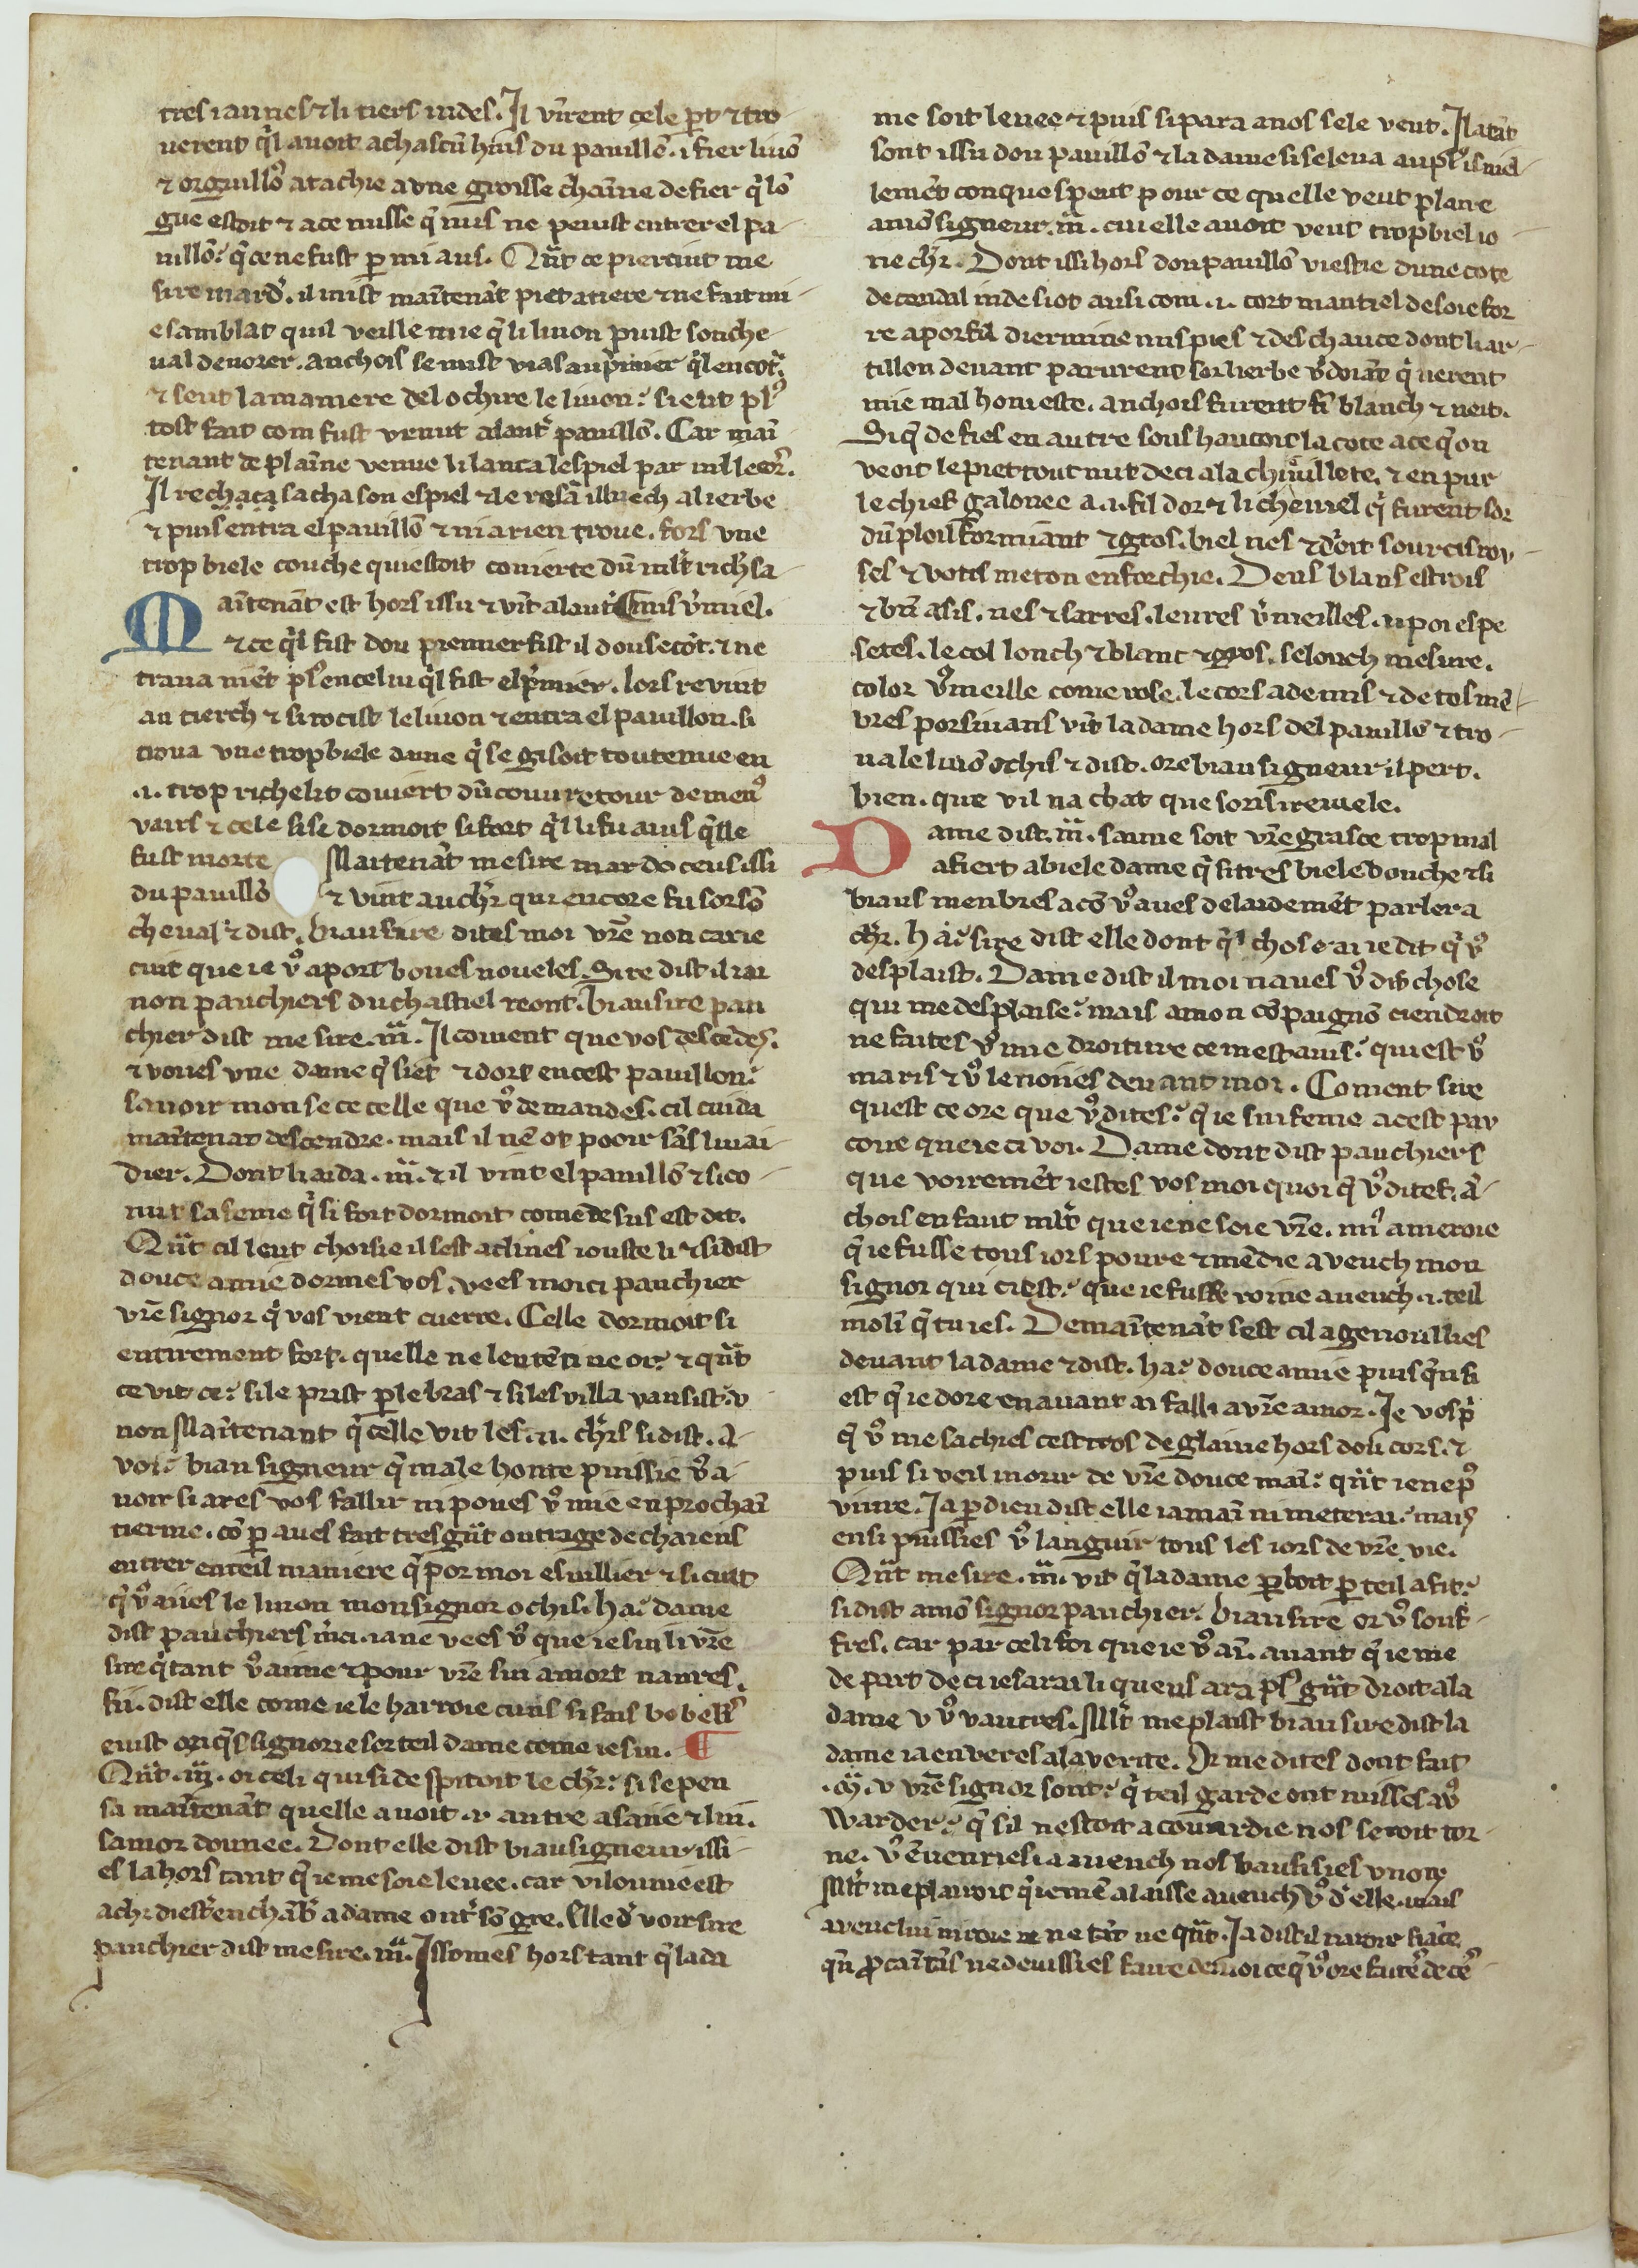 tres iaunes ⁊ li tiers indes. Il vīrent cele ꝑt ⁊ tro
uerent q̄l auoit a chascū huis du pauillō .i. fier liuō
⁊ orguillō atachie a vne grosse chaīne de fier q̄ lō
gue estoit ⁊ ace misse q̄ nus ne peuist entrer el pa
uillō ? q̄ ce ne fust ꝑ mi aus. Qūt ce pierciut me
sire mard̄. il mist maītenāt piet a tiere ⁊ ne fait mi
e samblāt quil veille mie q̄ li liuon puist son che
ual deuorer. anchois se mist vias au p̄mier q̄l encōt
⁊ seut la maniere del ochire le liuon ? si eut pl᷒
tost fait com fust venut a lautᵉ pauillō. Car maī
tenant de plaīne venue li lanca lespiel par mi le cor̄.
Il rechaca sacha son espiel ⁊ le resā illuech al ierbe
⁊ puis entra el pauillō ⁊ ni a rien troue. fors vne
trop biele couche qui estoit couierte dū mlt rich sa
Maītenāt est hors issu ⁊ vīt a lautᵉ ¶ mis v̄miel.
⁊ ce q̄l fist dou premier fist il dou secōt. ⁊ ne
traua niēt pl᷒ en celui q̄l fist el p̄mier. lors revint
au tierch ⁊ si rocist le liuon ⁊ entra el pauillon. si
troua vne trop biele dame q̄ se gisoit toute nue en
.i. trop riche lit couiert dū couuretour de men᷒
vairs ⁊ cele si se dormoit si fort q̄l li fu auis q̄lle
fust morte Maitenāt me sire mardoceus issi
du pauillō ⁊ vint au chr̄ qui encore fu sor sō
cheual ⁊ dist. biau sire dites moi vr̄e non car ie
cuit que ie v᷒ aport boues noueles. Sire dist il iai
non pauchiers du chastiel reont. biau sire pau
chier dist me sire .m̄. Il couient que vos descēdes.
⁊ voues vne dame q̄ siet ⁊ dort en cest pauillon ?
sauoir mon se ce celle que v᷒ demandes. cil cuida
maītenāt descendre. mais il nē ot pooir sās lui ai
dier. Dont li aida .m̄. ⁊ il vint el pauillō ⁊ si co
nut sa feme q̄ si fort dormoit come desus est dit.
Qūt cil leut choisie il sest aclines iouste li ⁊ si dist
douce amie dormes vos. vees moi ci pauchier
vr̄e signor q̄ vos vient cuerre. Celle dormoit si
entirement fort. quelle ne lentēti ne oi ? ⁊ qūt
ce vit ce ? si le prist ꝑ le bras ⁊ si les villa vausist. v
non Maītenant q̄ celle vit les .ii. chr̄s si dist. A
voi ? biau signeur q̄ male honte puissie v᷒ a
uoir si ares vos fallir ni poues v᷒ mie en prochaī
tierme. cō ꝑ aues fait tres gūt outrage de chaiens
entrer en teil maniere q̄ por moi esuillier ⁊ si cuit
q̄ v᷒ aues le liuon mon signor ochis. ha ? dame
dist pauchiers m̄ci. ia ne vees v᷒ que ie sui li vr̄e
sire q̄ tant v᷒ aime ⁊ pour vr̄e sui a mort naures.
fii. dist elle come ie le harroie cuns si fais bobers̄
euist onq̄s signorie sor teil dame come ie sui. ¶
Qūt .m̄. oi celi qui si despitoit le chr̄ ? si se pen
sa maītenāt quelle auoit .i. autre asanē ⁊ lui.
samor dounee. Dont elle dist biau signeur issi
es la hors tant q̄ ie me soie leuee. car vilounie est
a chr̄ diestᵉ en chāb̄ a dame outᵉ sō gre. Elle d̄ voir sire
pauchier dist me sire .m̄. Issomes hors tant q̄ la da
me soit leuee ⁊ puis si para a nos sele veut. Il atāt
sont issu dou pauillō ⁊ la dame si se leua au pl᷒ isniel
lemēt conques peut pour ce quelle veut plaire
a mō signeur .m̄. cui elle auoit veut trop biel io
ne chr̄. Dont issi hors dou pauillō viestie dune cote
de cendal inde si ot ausi com .i. cort mantiel de soie for
re a porfil diermine nus pies ⁊ deschauce dont li ar
tillon deuant parurent sor lierbe v̄doiāt q̄ nerent
mie mal honieste. anchois furent fī blanch ⁊ neit.
Siq̄ de fies en autre sous haucoit la cote a ce q̄ on
veoit le piet tout nut deci a la chiuillete. ⁊ en pur
le chief galonee a .i. fil dor ⁊ li cheuiel q̄ furent sor
dū ploit formiant ⁊ gros. biel nes ⁊ d̄oit sourcis rou
ses ⁊ votis meton enforchie. Deus blans estrois
⁊ bn̄ asis. nes ⁊ sarres. leures v̄meilles. i poi espe
setes. le col lonch ⁊ blanc ⁊ gros. se lonch mesure.
color v̄meille come rose. le cors ademis ⁊ de tos mē
bres porsiuans vīt la dame hors del pauillō ⁊ tro
ua le liuō ochis ⁊ dist. ore biau signeur il pert.
bien. que vil nachat que sons ireuiele.
Dame dist .m̄. sauue soit vr̄e grasce trop mal
afiert a biele dame q̄ si tres biele bouche ⁊ si
biaus menbres a cō v᷒ aues de laidemēt parler a
chr̄. ha ? sire dist elle dont q̄l chose ai ie dit q̄ v᷒
desplaist. Dame dist il moi naues v᷒ dit chose
qui me desplaise ? mais a mon cōpaignō ciendroit
ne faites v᷒ mie droiture ce mest auis ? qui est v᷒
maris ⁊ v᷒ le noies deuant moi. Coment sire
quest ce ore que v᷒ dites ? q̄ ie sui feme a cest pau
tone que ie ci voi. Dame dont dist pauchiers
que voiremēt iestes vos moi quoi q̄ v᷒ dites. ā
chois en faut mlt que ie ne soie vr̄e. mi᷒ ameroie
q̄ ie fusse tous iors poure ⁊ mēdie aveuch mon
signor qui ci est ? que ie fusse roine aueuch .i. teil
molī q̄ tu ies. Demaītenāt sest cil agenoullies
deuant la dame ⁊ dist. ha ? douce amie puis q̄nsi
est q̄ ie dore en auant ai falli a vr̄e amor. Ie vos p̄
q̄ v᷒ me sachies cest tros de glaiue hors dou cors. ⁊
puis si veil morir de vr̄e douce maī ? qūt ie ne p᷒
viure. Ia ꝑ dieu dist elle ia maī ni meterai ? mais
ensi puissies v᷒ languir tous les iors de vr̄e vie.
Qūt me sire .m̄. vit q̄ la dame ꝑloit ꝑ teil afit ?
si dist a mō signor pauchier. biau sire or v᷒ souf
fres. car par celi foi que ie v᷒ aī. auant q̄ ie me
depart de ci ie sarai li queus ara pl᷒ gūt droit a la
dame v v᷒ v autres. Mlt me plaist biau sire dist la
dame ia en veres a la verite. Or me dites dont fait
.m̄. v vr̄e signor sont ? q̄ teil garde ont misses a v᷒
warder ? q̄ sil nestoit a couuardie nos seroit tor
ne. v᷒ ēuenries ia aueuch nos vausissies v non
Mlt me plairoit q̄ ie mē alaisse aueuch v᷒ d̄ elle. mais
aueuc lui niroie ie ne tāt ne qūt. Ia dist il